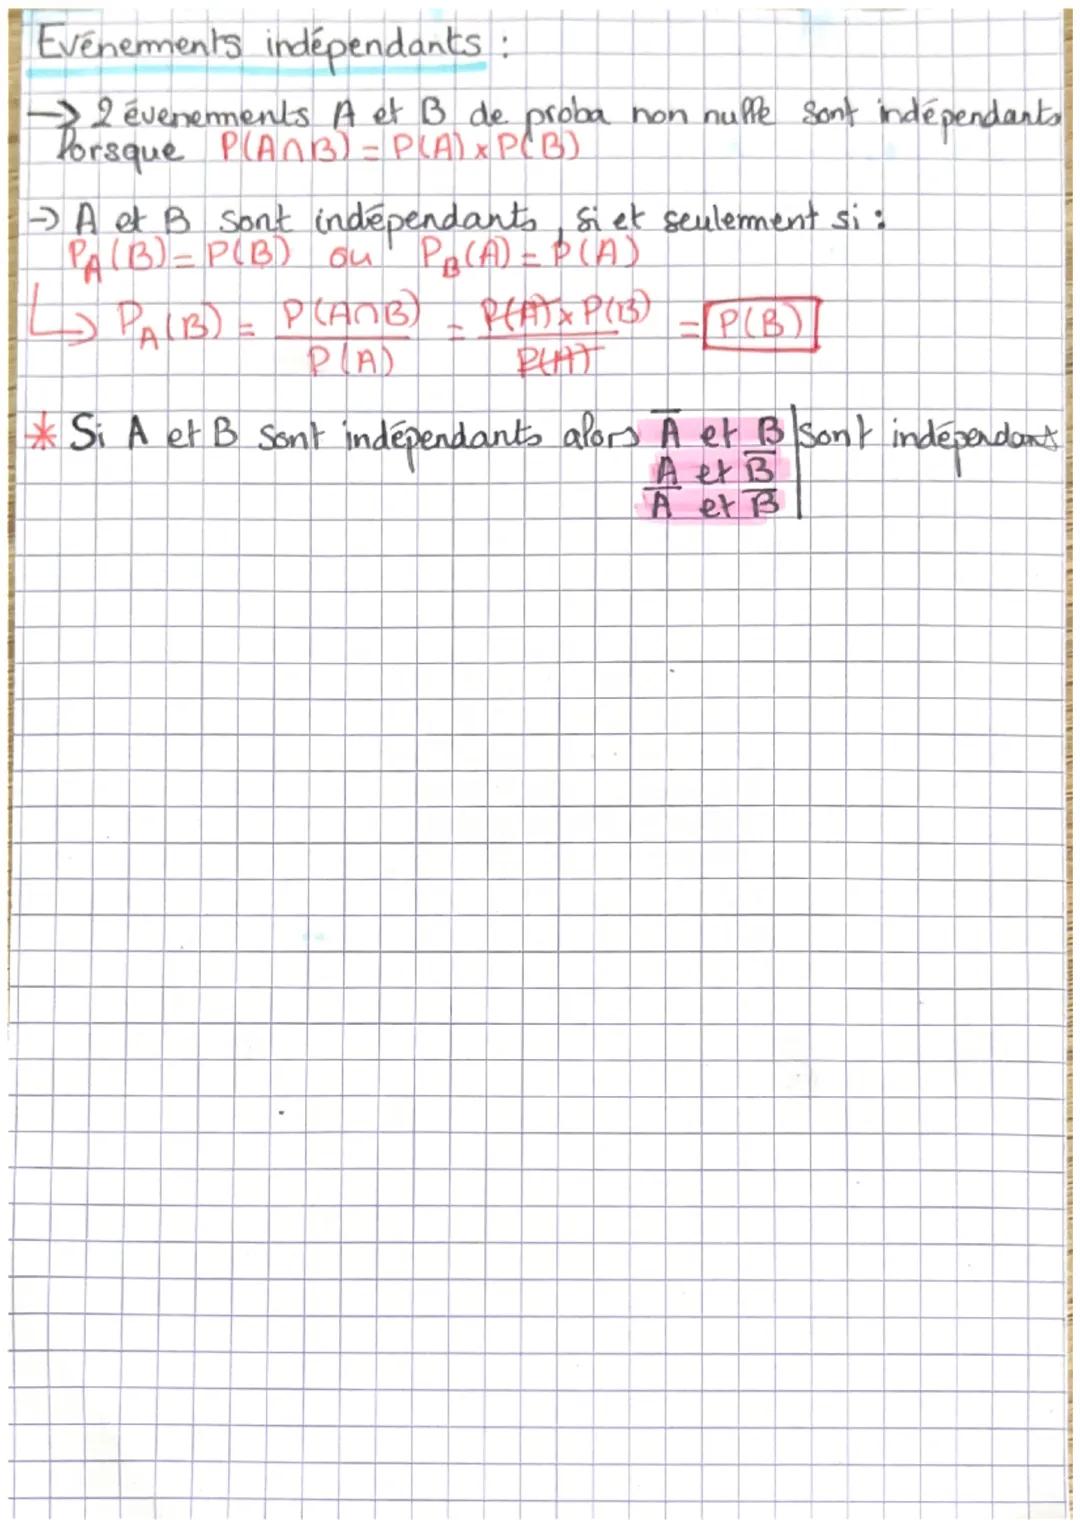 Evénements indépendants :
→ 2 évenements A et B de proba non nulle sont indépendants
lorsque P(A∩B) = P(A) x P(B)
→ A et B sont indépendants, si et seulement si :
P_A(B) = P(B) ou P_B(A) = P(A)
↳ P_A(B) = P(A∩B)/P(A) = P(A) x P(B)/P(A) = P(B)
* Si A et B sont indépendants alors A̅ et B sont indépendant
A et B̅
A̅ et B̅